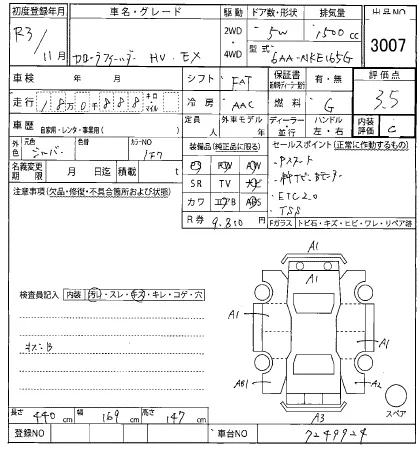 初度登録年月 車名・グレード 駆動 ドア数・形状 排気量 出品NO
R3/11月 カローラフィールダー HV EX 2WD・4WD 5W 1500cc 3007
型式 6AA-NKE165G
車検 年 月 シフト FAT 保証書 有・無 評価点
走行 18万0千888 キロ・マイル 冷房 AAC 燃料 G 3.5
車歴 自家用・レンタ・事業用( ) 定員 人 外車モデル 年 ディーラー 並行 ハンドル 左・右 内装評価 C
外色 元色 シルバー 色替 カラーNO 1F7 装備品(純正品に限る) セールスポイント(正常に作動するもの)
名義変更期限 月 日迄 積載 t PS PW AW
注意事項(欠品・修復・不具合箇所および状態) SR TV ナビ
カワ エアB ABS
R券 9,810円
・Pスタート
・ETC2.0
・TSS
Fガラス トビ石・キズ・ヒビ・ワレ・リペア跡
検査員記入 内装 汚れ・スレ・キズ・キレ・コゲ・穴
キズB
A1
A1
A1
A1
AB1
A2
A3
スペア
長さ 440cm 幅 169cm 高さ 147cm
登録NO 車台NO 7249924